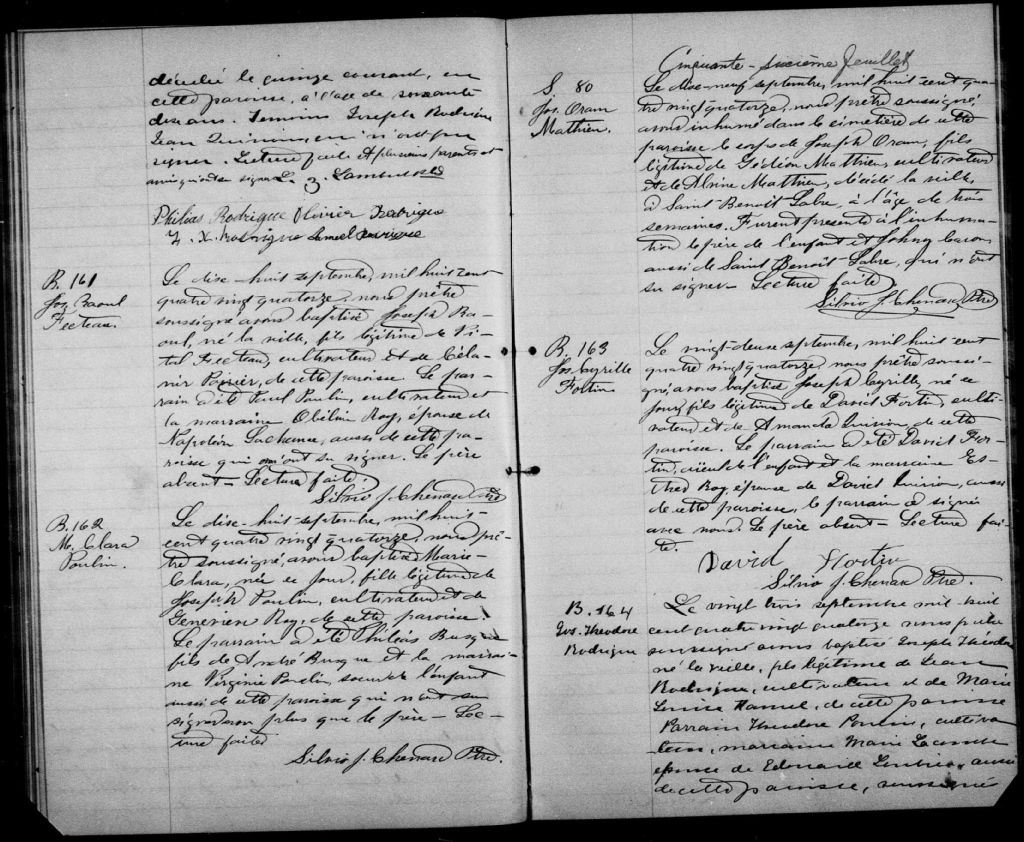 décédé le quinze courant, en
cette paroisse, à l'age de soixante
dix ans. Témoins Joseph Rodrigue
Jean Quirion, qui n'ont pu
signer. Lecture faite. Plusieurs parents et
amis qui ont su signer. L. Z. Lambert Ptre
Philias Rodrigue Olivier Rodrigue
F. X. Rodrigue Samuel Rodrigue
B. 161
Jos. Raoul
Fecteau.
Le dix-huit septembre, mil huit cent
quatre vingt quatorze, nous prêtre
soussigné avons baptisé Joseph Ra-
oul, né la veille, fils légitime de Vi-
tal Fecteau, cultivateur et de Céla-
nir Poirier, de cette paroisse. Le par-
rain a été Paul Poulin, cultivateur et
la marraine Obéline Roy, épouse de
Napoléon Lachance, aussi de cette pa-
roisse qui n'ont su signer. Le père
absent - Lecture faite.
Silvio J. Chenard Ptre
B. 162
M. Clara
Poulin.
Le dix-huit-septembre, mil huit-
cent quatre vingt quatorze, nous prê-
tre soussigné, avons baptisé Marie-
Clara, née ce jour, fille légitime de
Joseph Poulin, cultivateur et de
Geneviève Roy, de cette paroisse.
Le parrain a été Philéas Busque
fils de André Busque et la marrai-
ne Virginie Poulin, soeur de l'enfant
aussi de cette paroisse qui n'ont su
signer non plus que le père - Lec-
ture faite
Silvio J. Chenard Ptre.
Cinquante-sixième feuillet
S. 80
Jos. Oram
Mathieu.
Le dix-neuf septembre, mil huit cent qua-
tre vingt quatorze, nous prêtre soussigné,
avons inhumé dans le cimetière de cette
paroisse le corps de Joseph Oram, fils
légitime de Gédéon Mathieu, cultivateur
et de Alvine Mathieu, décédé la veille,
à Saint Benoit Labre, à l'âge de trois
semaines. Furent présents à l'inhuma-
tion le père de l'enfant et Johny Caron
aussi de Saint Benoît-Labre, qui n'ont
su signer - Lecture faite
Silvio J. Chenard Ptre
B. 163
Jos. Cyrille
Fortin
Le vingt-deux septembre, mil huit cent
quatre vingt quatorze nous prêtre soussi-
gné, avons baptisé Joseph Cyrille, né ce
jour, fils légitime de David Fortin, culti-
vateur, et de Amanda Quirion, de cette
paroisse. Le parrain a été David For-
tin, aïeul de l'enfant et la marraine Es-
ther Roy, épouse de David Quirion, aussi
de cette paroisse, le parrain a signé
avec nous. Le père absent - Lecture fai-
te.
David Fortin
Silvio J. Chenard Ptre.
B. 164
Jos. Théodore
Rodrigue
Le vingt trois septembre mil huit
cent quatre vingt quatorze nous prêtre
soussigné avons baptisé Joseph Théodore
né la veille, fils légitime de Jean
Rodrigue, cultivateur et de Marie
Louise Hamel, de cette paroisse
Parrain Théodore Poulin, cultiva
teur, marraine Marie
épouse de Edouard aussi
de cette paroisse, soussigné